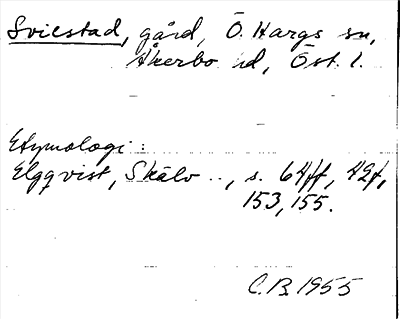 Svicstad, gård, Ö. Hargs sn,
Åkerbo hd, Öst. l.
Etymologi:
Elgqvist, Skälv .., s. 64ff, 42f,
153, 155.
C.B. 1955